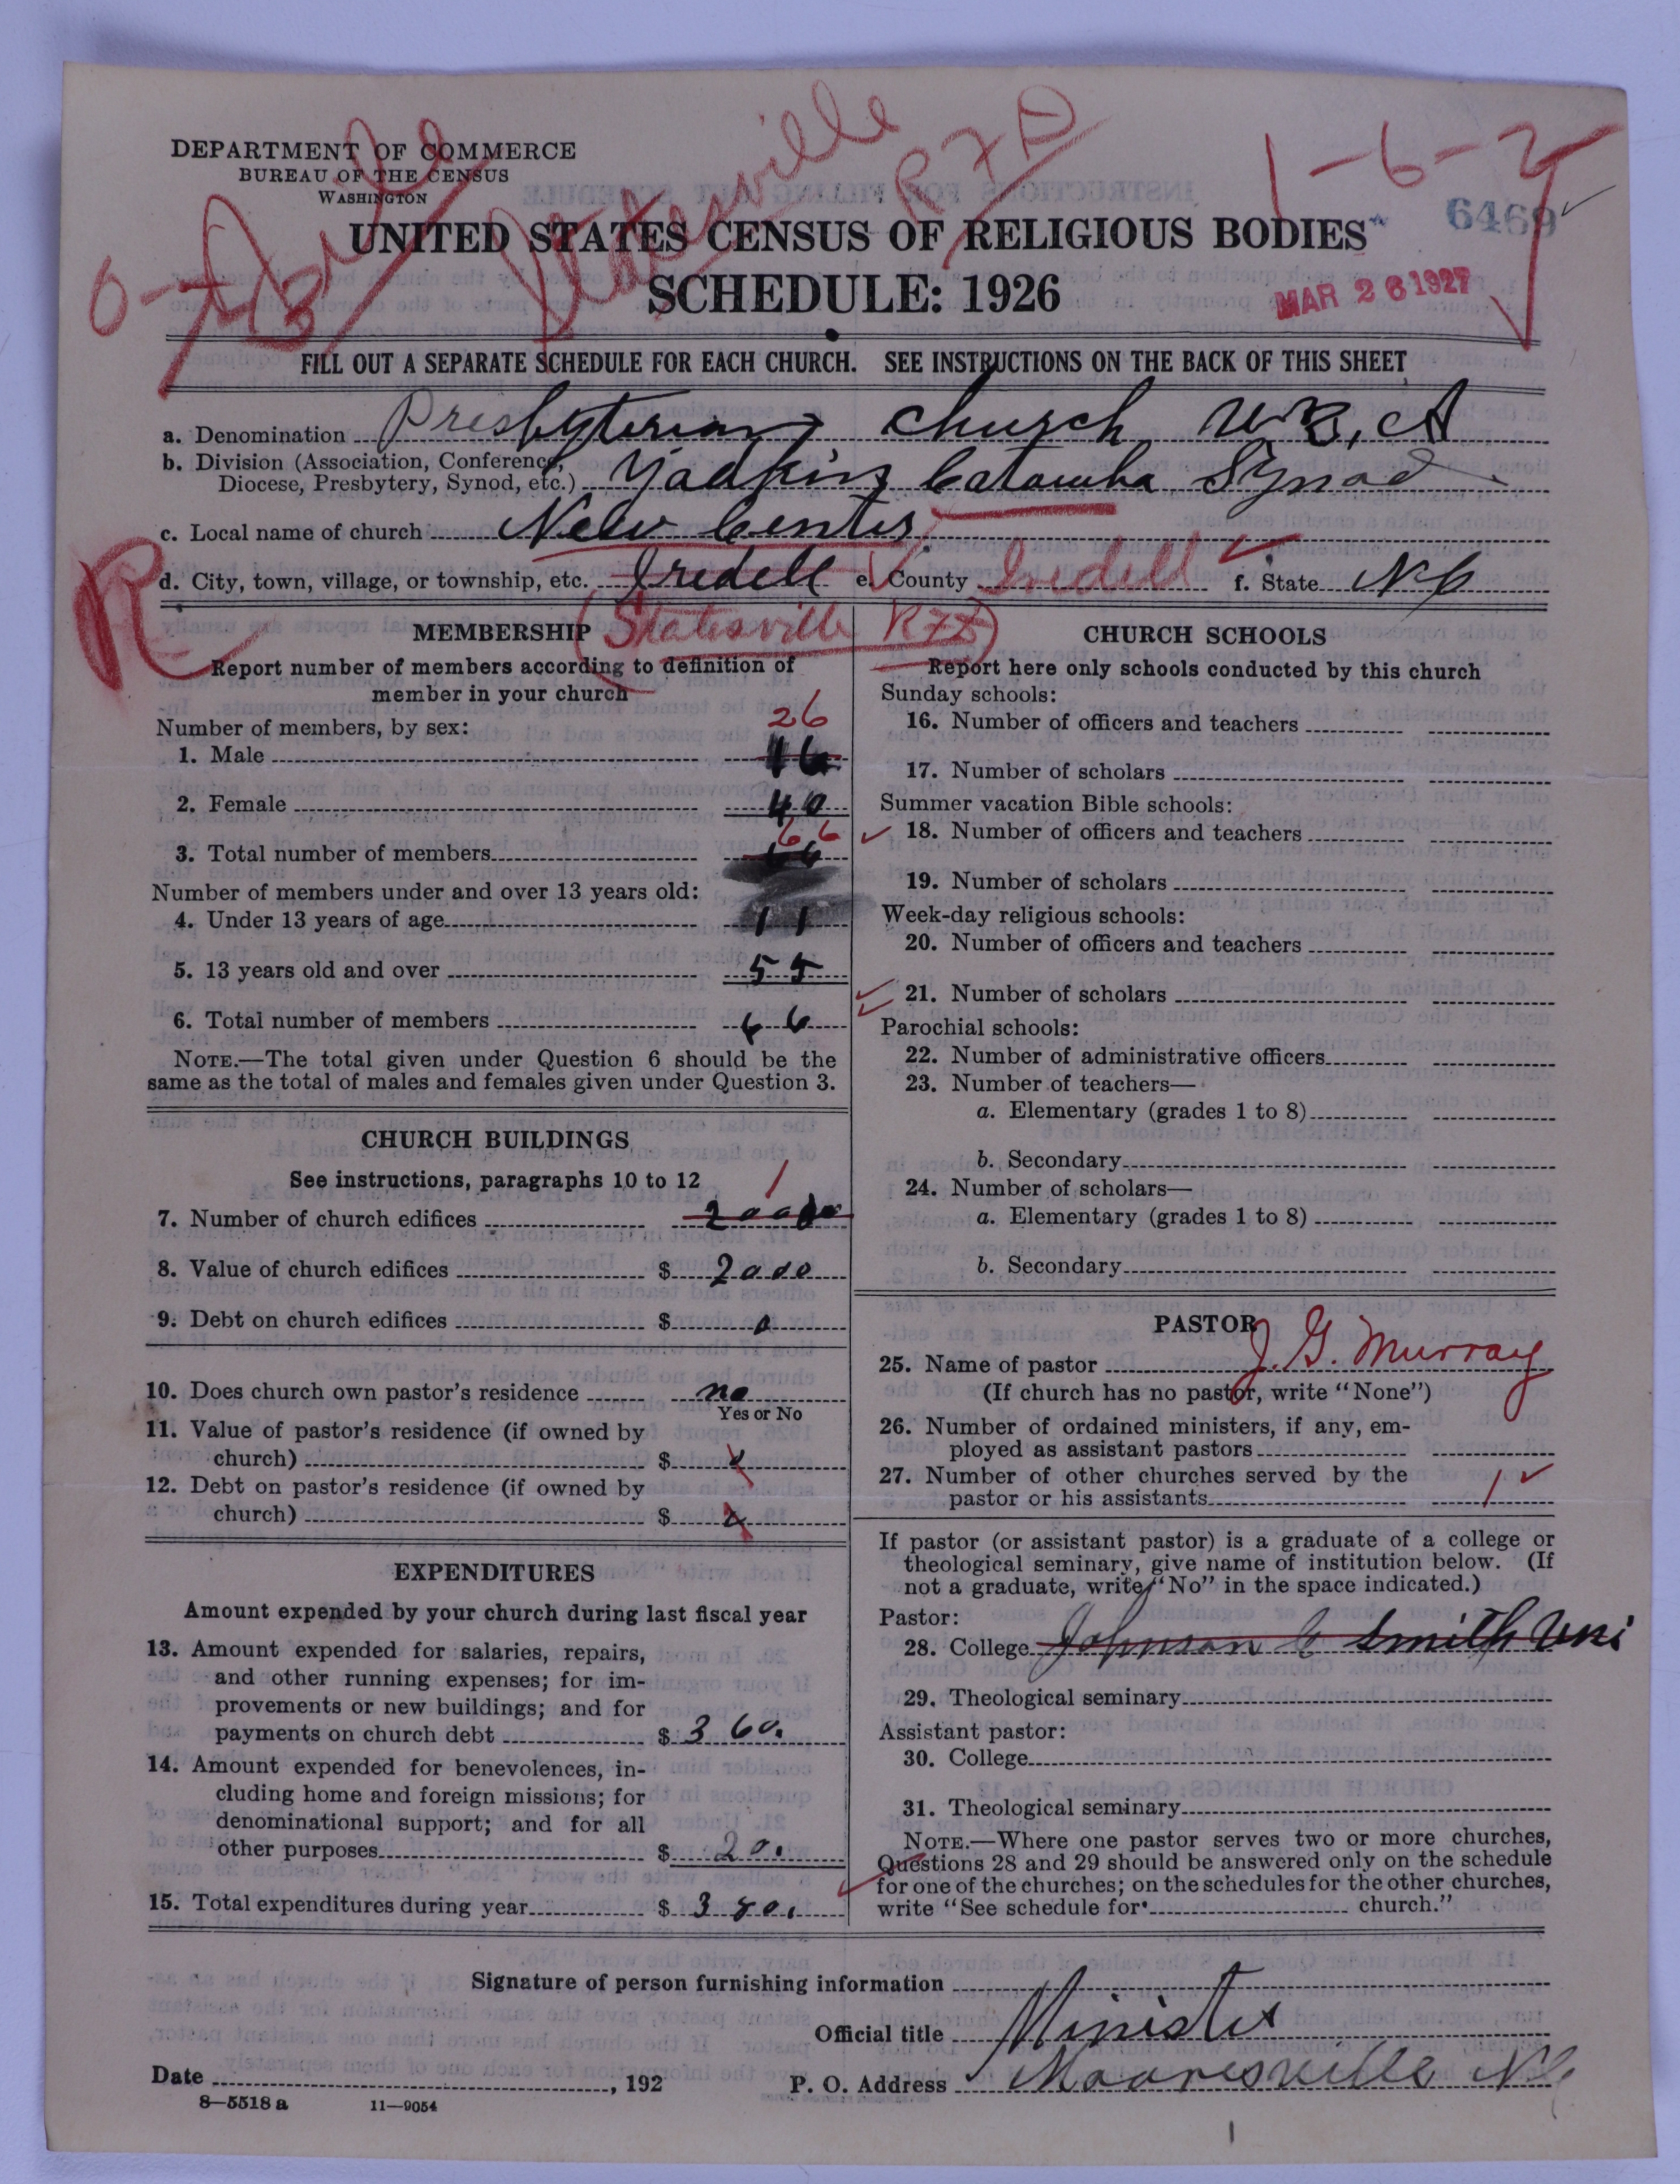 DEPARTMENT OF COMMERCE
BUREAU OF THE CENSUS
WASHINGTON
Statesville
R F D
1-6-2
6469
UNITED STATES CENSUS OF RELIGIOUS BODIES
SCHEDULE: 1926
MAR 26 1927
FILL OUT A SEPARATE SCHEDULE FOR EACH CHURCH. SEE INSTRUCTIONS ON THE BACK OF THIS SHEET
a. Denomination Presbyterian Church U.S.A
b. Division (Association, Conference, Diocese, Presbytery, Synod, etc.) Yadkin Catawba Synod
c. Local name of church New Center
d. City, town, village, or township, etc. Iredell e. County Iredell f. State N C
R
Statesville R F D
MEMBERSHIP
Report number of members according to definition of
member in your church
Number of members, by sex:
26
1. Male 46
2. Female 40
66
3. Total number of members 66
Number of members under and over 13 years old:
4. Under 13 years of age 11
5. 13 years old and over 55
6. Total number of members 66
NOTE.—The total given under Question 6 should be the
same as the total of males and females given under Question 3.
CHURCH BUILDINGS
See instructions, paragraphs 10 to 12
1
7. Number of church edifices 2000
8. Value of church edifices $ 2000
9. Debt on church edifices $ 0
10. Does church own pastor's residence no
Yes or No
11. Value of pastor's residence (if owned by
church) $ x
12. Debt on pastor's residence (if owned by
church) $ x
EXPENDITURES
Amount expended by your church during last fiscal year
13. Amount expended for salaries, repairs,
and other running expenses; for im-
provements or new buildings; and for
payments on church debt $ 360.
14. Amount expended for benevolences, in-
cluding home and foreign missions; for
denominational support; and for all
other purposes $ 20.
15. Total expenditures during year $ 380.
CHURCH SCHOOLS
Report here only schools conducted by this church
Sunday schools:
16. Number of officers and teachers
17. Number of scholars
Summer vacation Bible schools:
18. Number of officers and teachers
19. Number of scholars
Week-day religious schools:
20. Number of officers and teachers
21. Number of scholars
Parochial schools:
22. Number of administrative officers
23. Number of teachers—
a. Elementary (grades 1 to 8)
b. Secondary
24. Number of scholars—
a. Elementary (grades 1 to 8)
b. Secondary
PASTOR
25. Name of pastor J. G. Murray
(If church has no pastor, write "None")
26. Number of ordained ministers, if any, em-
ployed as assistant pastors
27. Number of other churches served by the
pastor or his assistants 1
If pastor (or assistant pastor) is a graduate of a college or
theological seminary, give name of institution below. (If
not a graduate, write "No" in the space indicated.)
Pastor:
28. College Johnson C Smith Uni
29. Theological seminary
Assistant pastor:
30. College
31. Theological seminary
NOTE.—Where one pastor serves two or more churches,
Questions 28 and 29 should be answered only on the schedule
for one of the churches; on the schedules for the other churches,
write "See schedule for church."
Signature of person furnishing information
Official title Minister
Date , 192
P. O. Address Mooresville N C
8—5518 a 11—9054